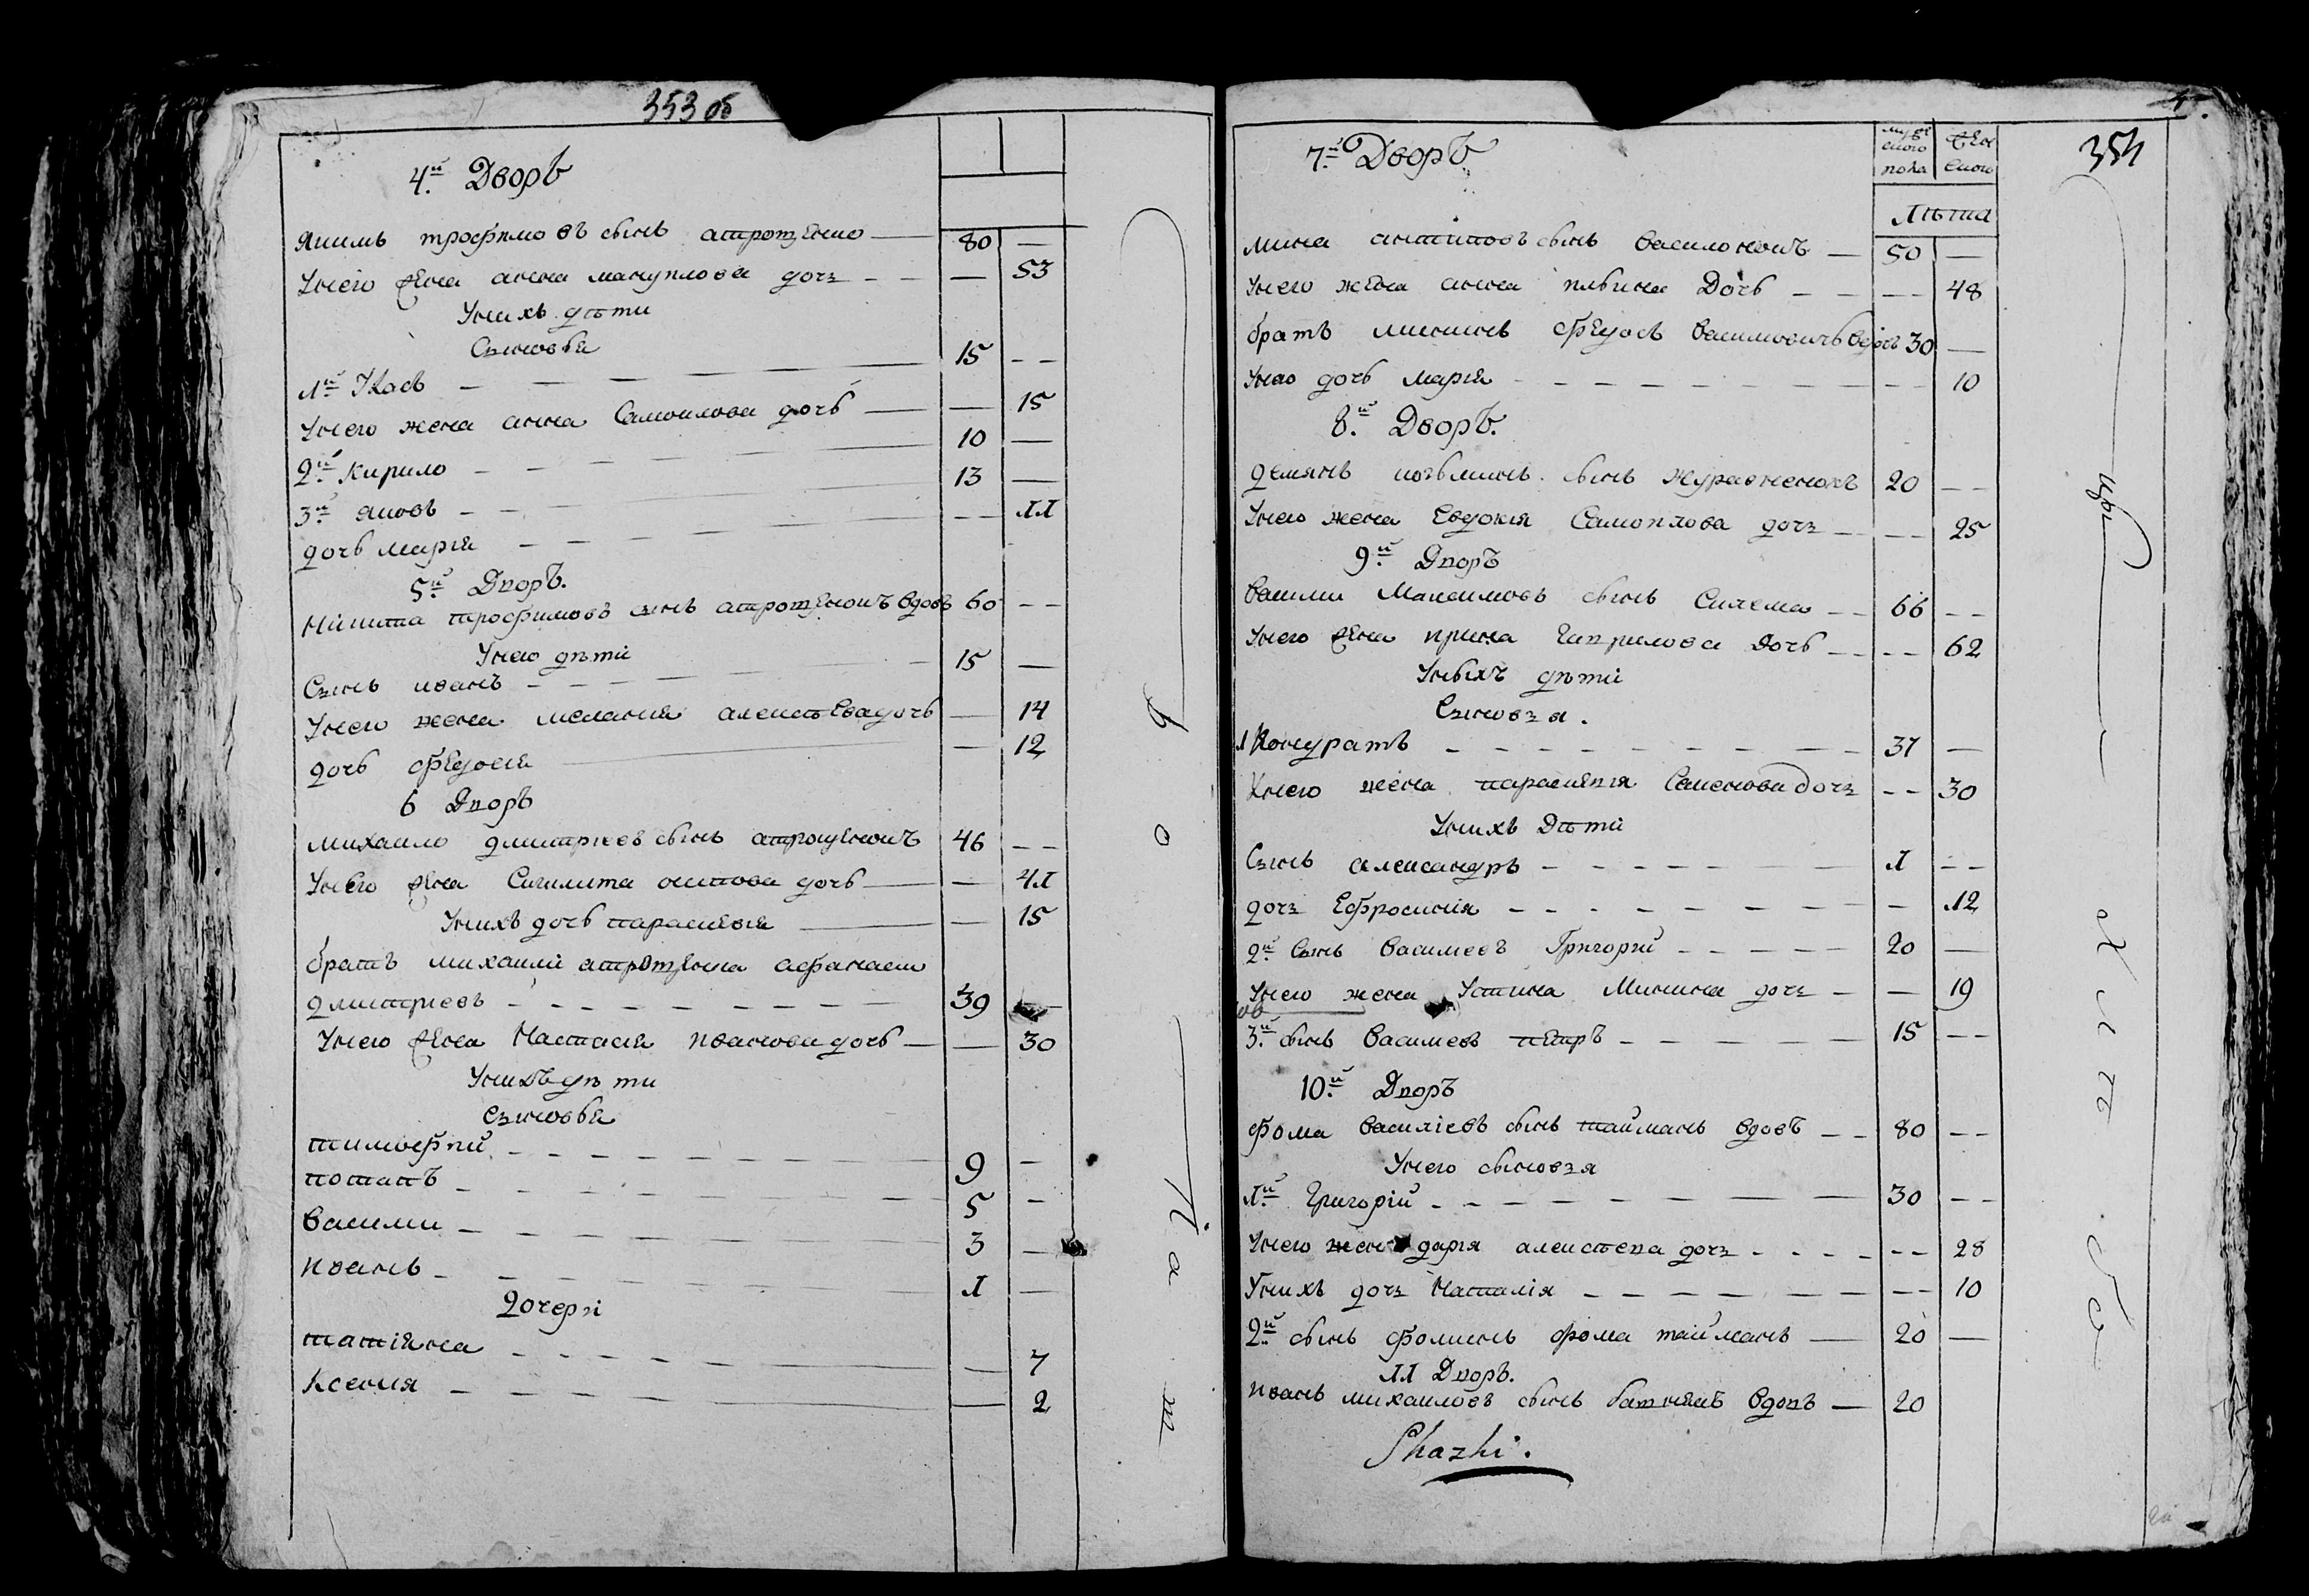 353 об
4й Дворъ
Якимъ трофимовъ сынъ атрощенко — 80 —
Унего жена анна мануилова дочь — — — 53
Унихъ дѣти
Сыновья
1й Икасъ — — — — 15 — —
Унего жена анна Самоилова дочь — — 15
2й Кирило — — — — 10 —
3й яковъ — — — 13 —
дочь марія — — — — — 11
5й Дворъ.
Никита трофимовъ сынъ атрощенокъ вдовъ 60 — —
Унего дѣти
Сынъ иванъ — — — — 15 —
Унего жена мелания алексѣева дочь — 14
дочь федосія — — 12
6 Дворъ
михаило дмитриевъ сынъ атрощенокъ 46 — —
Унего жена осипова дочь — — 41
Унихъ дочь параскевия — — 15
братъ михаили атрощенка афанасеи
дмитриевъ — — — — — — — — 39 —
Унего жена Настасия иванова дочь — — 30
Унихъ дѣти
Сыновья
тимофии — — — — — 9 —
потапъ — — — — — 5 —
Васили — — — — — 3 —
иванъ — — — — — 1 —
Дочери
татіяна — — — — — — 7
Ксения — — — — — — 2
Ѣ
о
П.
а
т
354
7й Дворъ
мужескаго пола женскаго
Лѣта
мина антиповъ сынъ Василионокъ — 50 —
Унего жена анна илъина Дочь — — — — 48
братъ мининъ федосъ вдовъ 30 —
Унего дочь мария — — — — — — — — — 10
8й Дворъ.
демянъ сынъ 20 — —
Унего жена Евдокия Самоилова дочь — — — 25
9й Дворъ
Васили Максимовъ сынъ — — 66 — —
Унего жена ирина Гаврилова Дочь — — — — 62
Унихъ дѣти
Сыновья.
1 Кондратъ — — — — — — — — — 37 —
Унего жена параскевия Семенова дочь — — 30
Унихъ Дѣти
Сынъ александръ — — — — — — 1 — —
дочь Ефросиния — — — — — — — — — 12
2й Сынъ Васильевъ Григорий — — — — — 20 —
Унего жена Устина Минина дочь — — 19
3й сынъ Васильевъ петръ — — — — — 15 — —
10й Дворъ
фома Василіевъ сынъ тайманъ вдовъ — — 80 — —
Унего сыновья
1й Григорій — — — — — — — — 30 — —
Унего жена дария алексѣева дочь — — — — — — 28
Унихъ дочь Наталія — — — — — — — — — 10
2й сынъ фоминъ фома тайманъ — 20 —
11 Дворъ.
иванъ михаиловъ сынъ вдовъ — 20